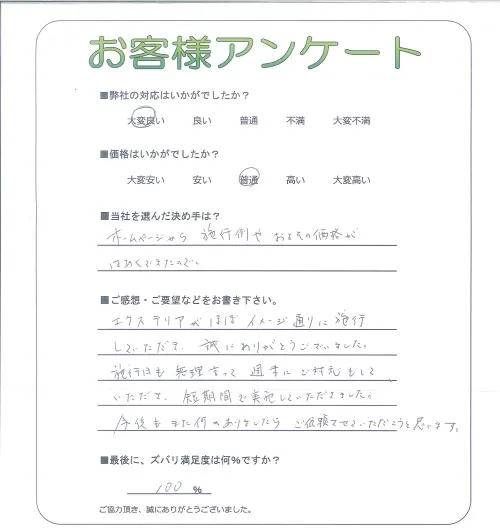 お客様アンケート
■弊社の対応はいかがでしたか？
大変良い 良い 普通 不満 大変不満
■価格はいかがでしたか？
大変安い 安い 普通 高い 大変高い
■当社を選んだ決め手は？
ホームページから 施行例や おおその価格が
はあくできたので。
■ご感想・ご要望などをお書き下さい。
エクステリアがほぼイメージ通りに施行
していただき、誠にありがとうございました。
施行日も無理言って 週末にご対応もして
いただき、短期間で実施していただきました。
今後もまた何かありましたら ご依頼させていただこうと思います。
■最後に、ズバリ満足度は何％ですか？
100 %
ご協力頂き、誠にありがとうございました。